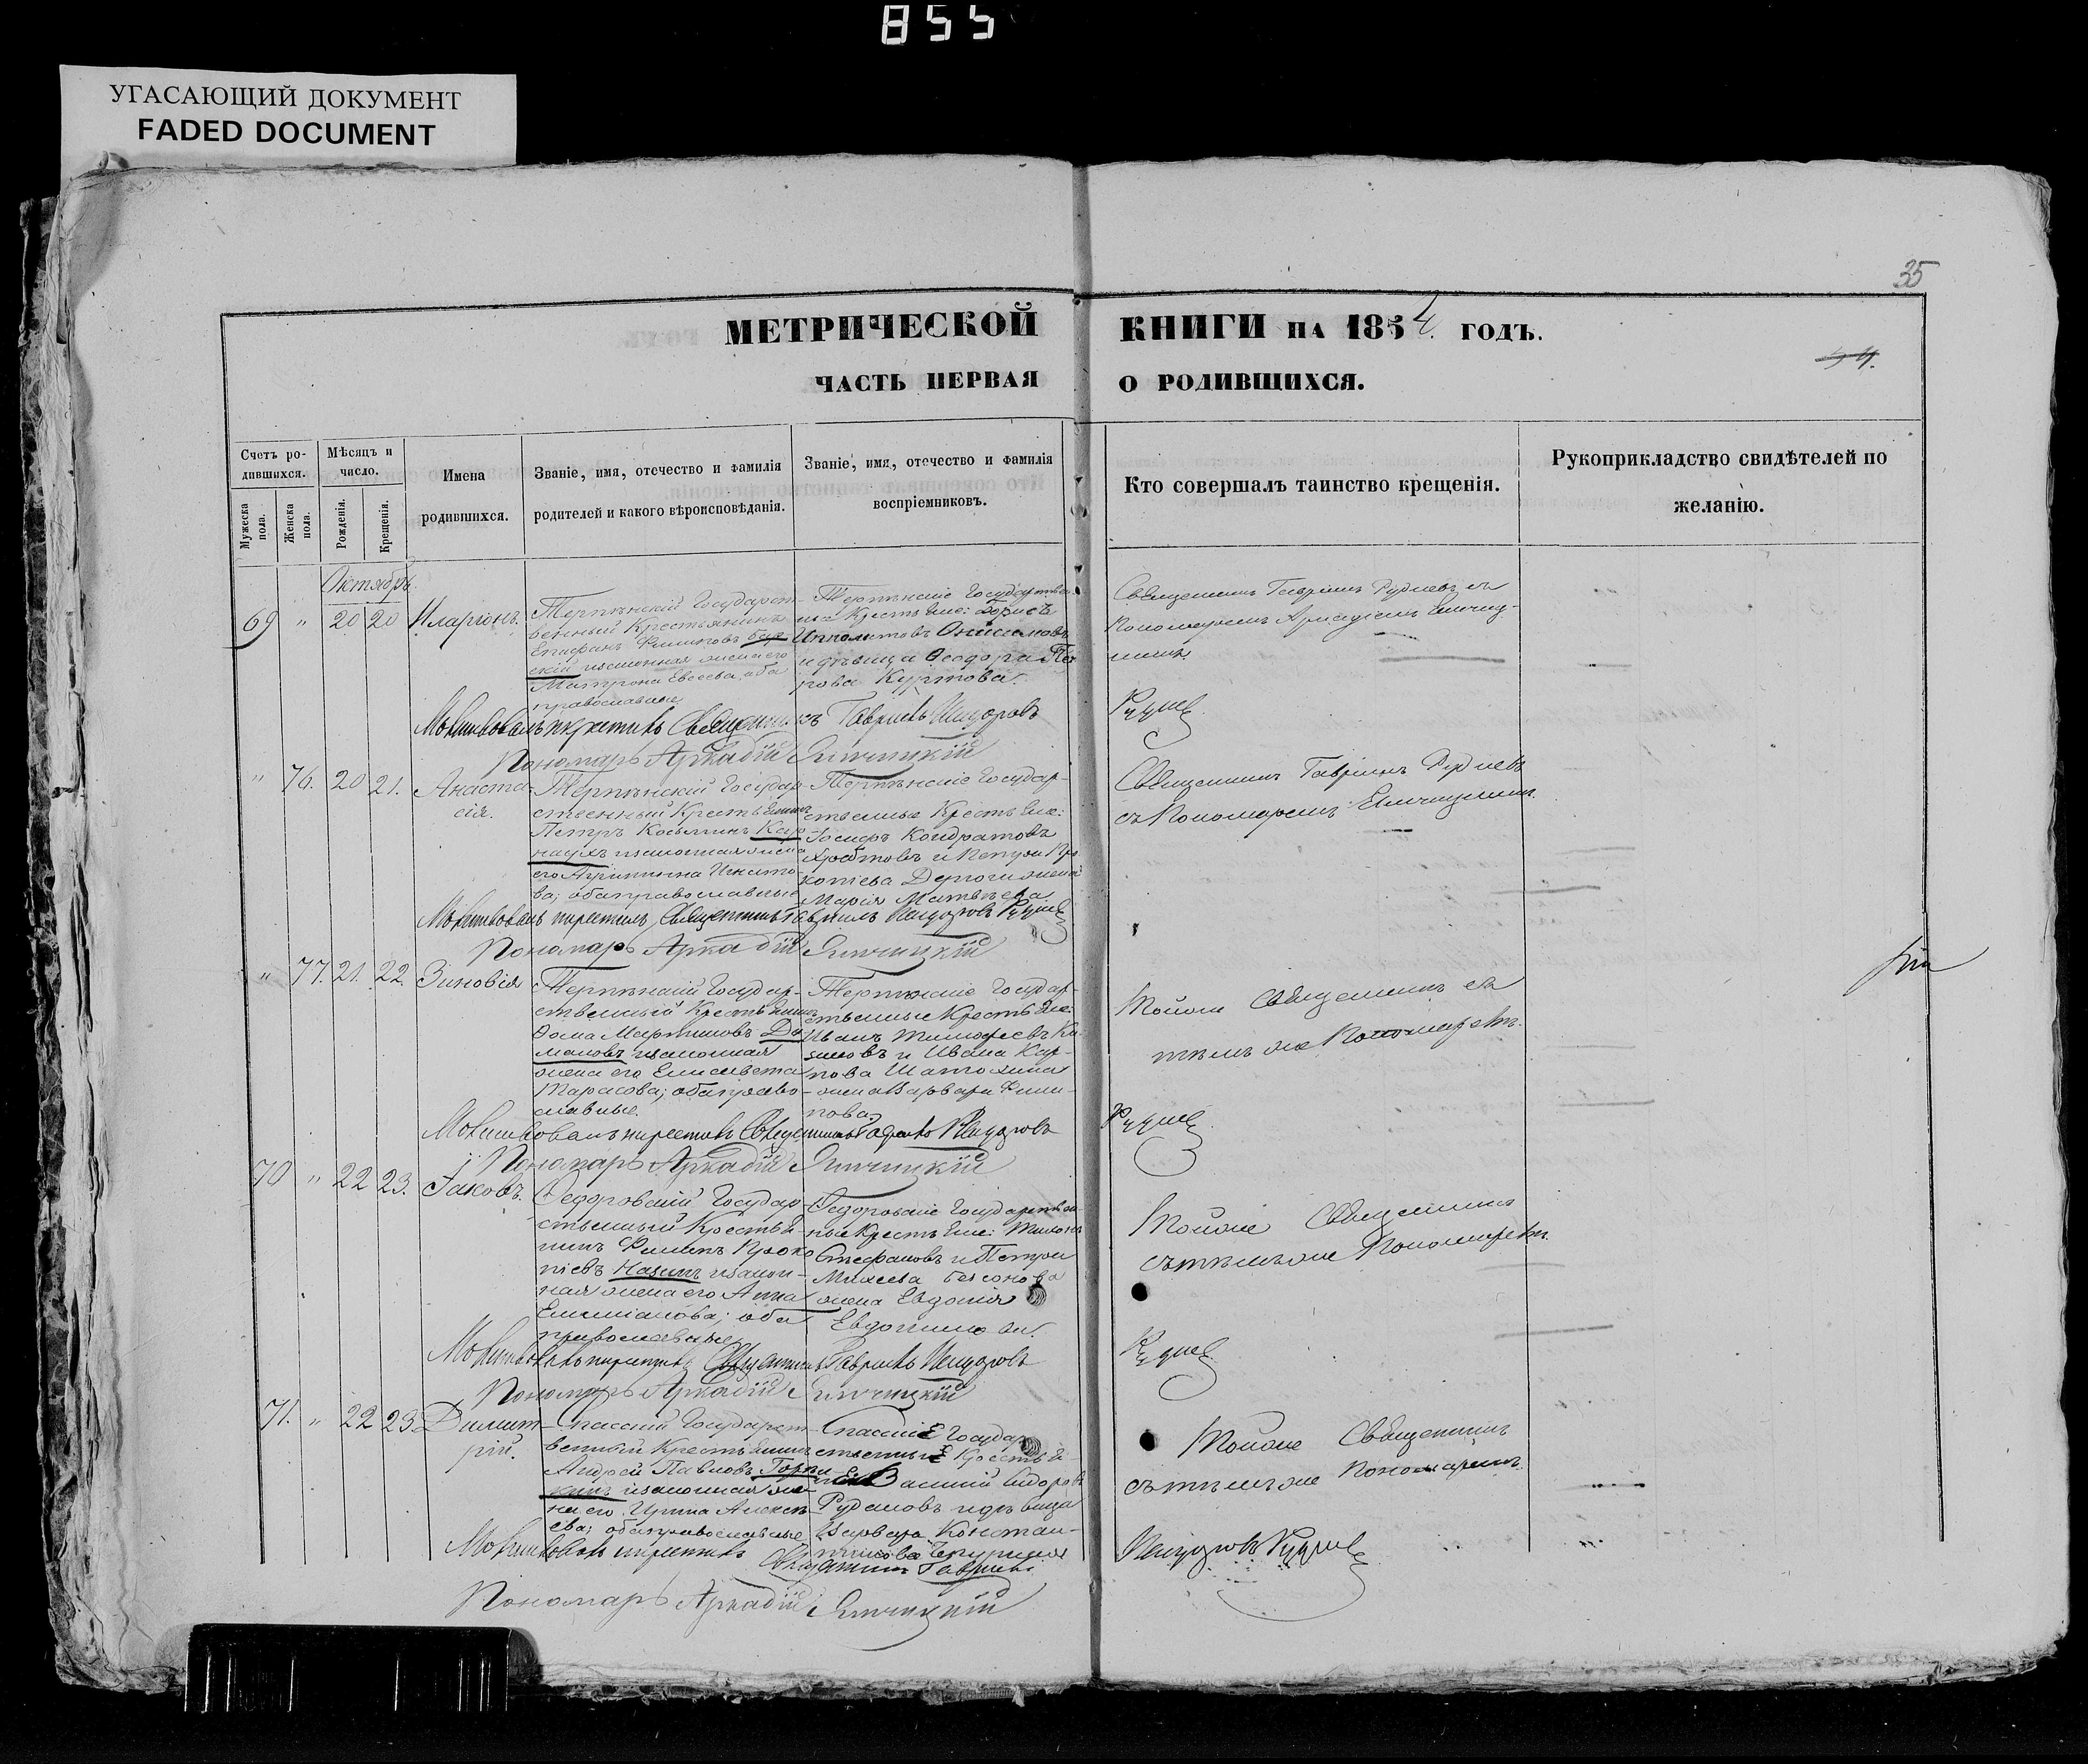 855
УГАСАЮЩИЙ ДОКУМЕНТ
FADED DOCUMENT
35
МЕТРИЧЕСКОЙ КНИГИ НА 1854 ГОДЪ.
ЧАСТЬ ПЕРВАЯ О РОДИВШИХСЯ.
Счетъ ро-
дившихся.
Мужеска пола.
Женска пола.
Мѣсяцъ и
число.
Рожденія.
Крещенія.
Имена
родившихся.
Званіе, имя, отечество и фамилія
родителей и какого вѣроисповѣданія.
Званіе, имя, отечество и фамилія
воспріемниковъ.
Кто совершалъ таинство крещенія.
Рукоприкладство свидѣтелей по
желанію.
Октябрь
69 " 20 20 Иларіонъ.
Терпѣнскій Государст-
венный Крестьянинъ
Епифанъ Филиповъ
законная жена его
Матрона Евсеева, оба
православные
Терпѣнскіе Государствен-
ные Крестьяне: Борисъ
Ипполитовъ Онисимовъ
и дѣвица Ѳеодора Пет-
рова Куртова.
Священникъ Гавріилъ Рудневъ съ
Пономаремъ Аркадіемъ Ямчиц-
кимъ.
Молитвовалъ и крестилъ Священникъ Гавріилъ Исидоровъ
Руднев
Пономарь Аркадій Ямчицкій
" 76. 20 21. Анаста-
сія.
Терпѣнскій Государ-
ственный Крестьянинъ
Петръ Косьминъ Кар-
наухъ и законная жена
его Агрипина Игнато-
ва; оба православные
Терпѣнскіе Государ-
ственные Крестьяне:
Іосифъ Кондратовъ
и Петра Про-
копіева жена
Марія Матвѣева.
Священникъ Гавріилъ Рудневъ
съ Пономаремъ Ямчицкимъ.
Молитвовалъ и крестилъ Священникъ Гавріилъ Исидоровъ Руднев
Пономарь Аркадій Ямчицкій
" 77. 21. 22. Зиновія
Терпѣнскій Государ-
ственный Крестьянинъ
Ѳома Мартиновъ
законная
жена его Елисавета
Тарасова; оба право-
славные.
Терпѣнскіе Государ-
ственные Крестьяне:
Иванъ Тимофеевъ
и Ивана Кар-
пова
жена Варвара Фили-
пова.
Тойже Священникъ съ
тѣмъ же Пономаремъ.
Молитвовалъ и крестилъ Священникъ Гавріилъ Исидоровъ
Руднев
Пономарь Аркадій Ямчицкій
70 " 22 23. Іаковъ.
Ѳедоровскій Государ-
ственный Крестья-
нинъ Филипъ Проко-
піевъ и закон-
ная жена его Анна
Емиліанова; оба
православные
Ѳедоровскіе Государствен-
ные Крестьяне: Тихонъ
Стефановъ и Петра
Михеева Безсонова
жена Евдокія
Евдокимова.
Тойже Священникъ
съ тѣмъ же Пономаремъ.
Молитвовалъ и крестилъ Священникъ Гавріилъ Исидоровъ
Руднев
Пономарь Аркадій Ямчицкій
71. " 22 23. Димит-
рій.
Спасскій Государст-
венный Крестьянинъ
Андрей Павловъ
законная же-
на его Ирина Алексѣ-
ева; оба православные
Спасскіе Государ-
ственные Крестья-
не: Василій Сидоровъ
Рудановъ и дѣвица
Варвара Констан-
тинова
Тойже Священникъ
съ тѣмъ же Пономаремъ.
Молитвовалъ и крестилъ Священникъ Гавріилъ
Исидоровъ Руднев
Пономарь Аркадій Ямчицкій